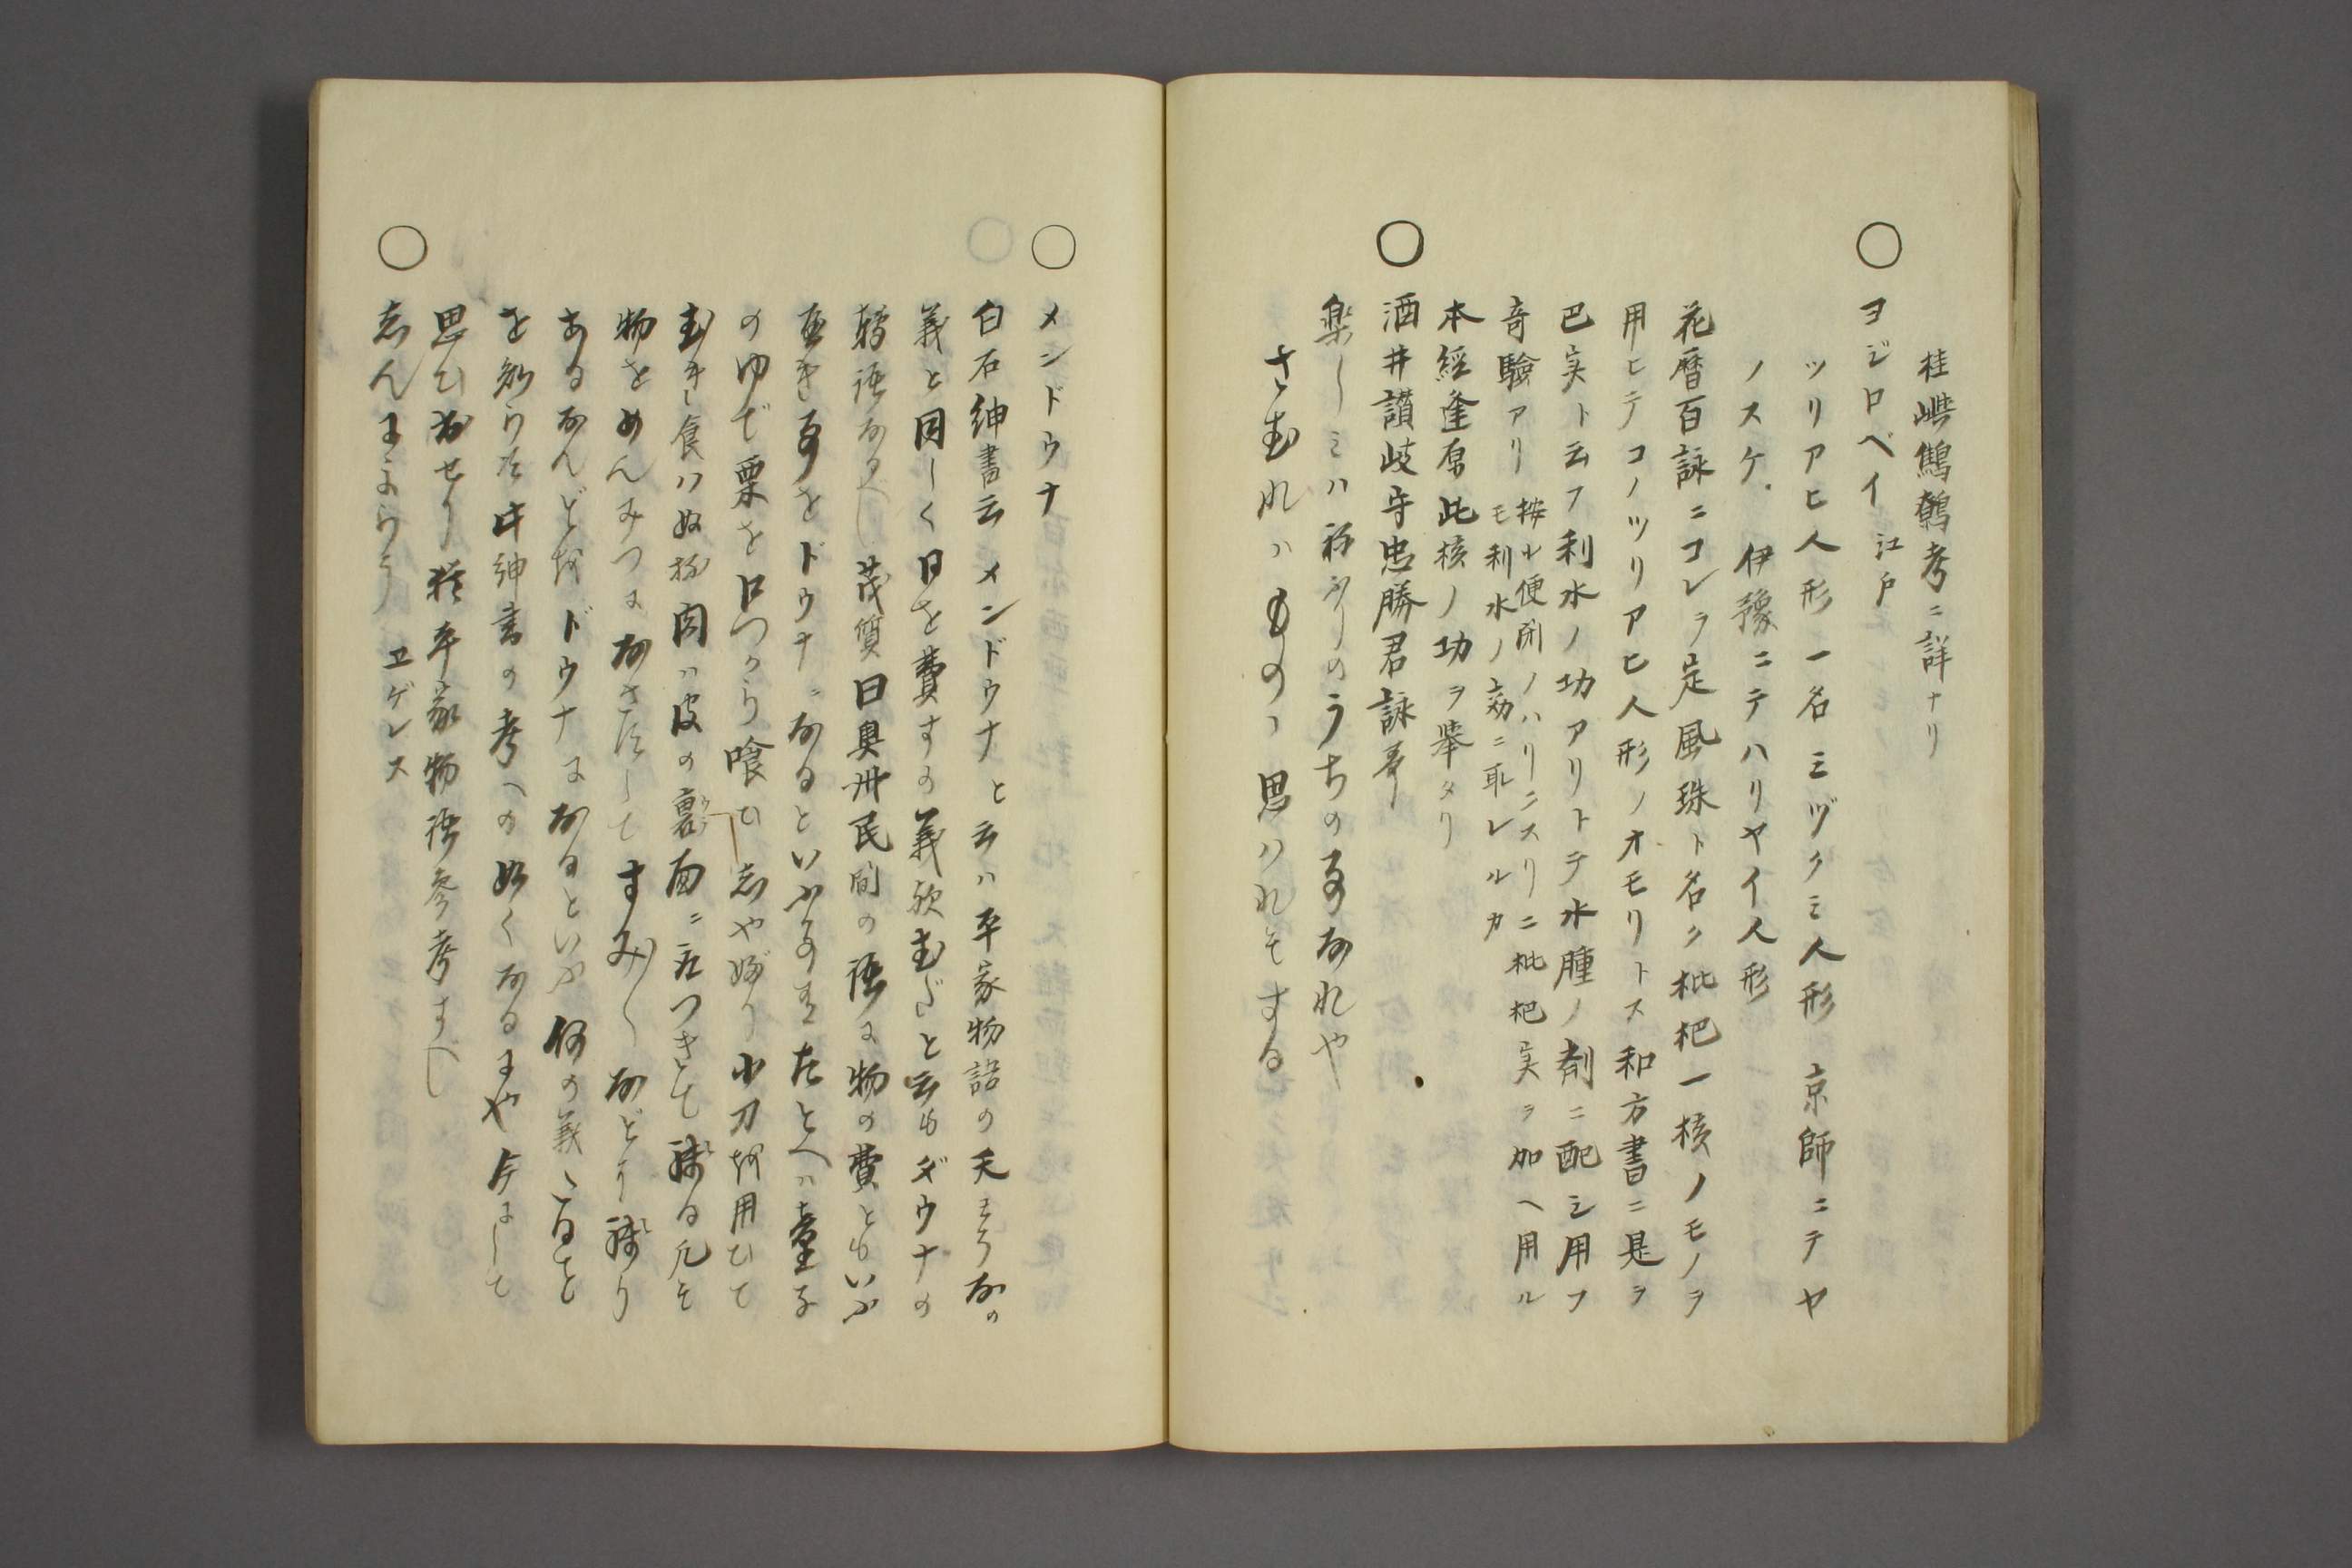 桂嶼鷦鷯考ニ詳ナリ
○ ヨジロベイ 江戸
ツリアヒ人形一名ミヅクミ人形 京師ニテヤ
ノスケ 伊豫ニテハリヤイ人形
花暦百詠ニコレラ定風珠ト名ク枇杷一核ノモノヲ
用ヒテコノツリアヒ人形ノオモリトス和方書ニ是ヲ
巴実ト云フ利水ノ功アリトテ水腫ノ剤ニ配シ用フ
奇驗アリ 按ル便閉ノハリニスリニ枇杷実ヲ加ヘ用ル
モ利水ノ効ニ取レルカ
本經逢原此核ノ功ヲ挙タリ
○ 酒井讃岐守忠勝君詠夀
楽しミハ祢ふりのうちの事なれや
さむれハものゝ思ハれそする
○ メンドウナ
白石紳書云メンドウナと云ハ平家物語の天
義と同しく日を費すの義欤むだと云もダウナの
轉語なるべし茂質曰奥州民間の語に物の費ともいふ
事をドウナニなるといふ たとへハ童子
のゆで栗を口つから喰ひ志やぶり小刀杯用ひて
むき食ハぬ杯肉ハ皮の裏面ニ付つきて残る凡そ
物をめんみつに なさずして すみ〳〵などに残り
あるなんど杯ドウナになるといふ何の義たるを
を知らず 此紳書の考への如くなるにや今にして
思ひ出せり 猶平家物語参考すべし
○ しんによらう ヱゲレス